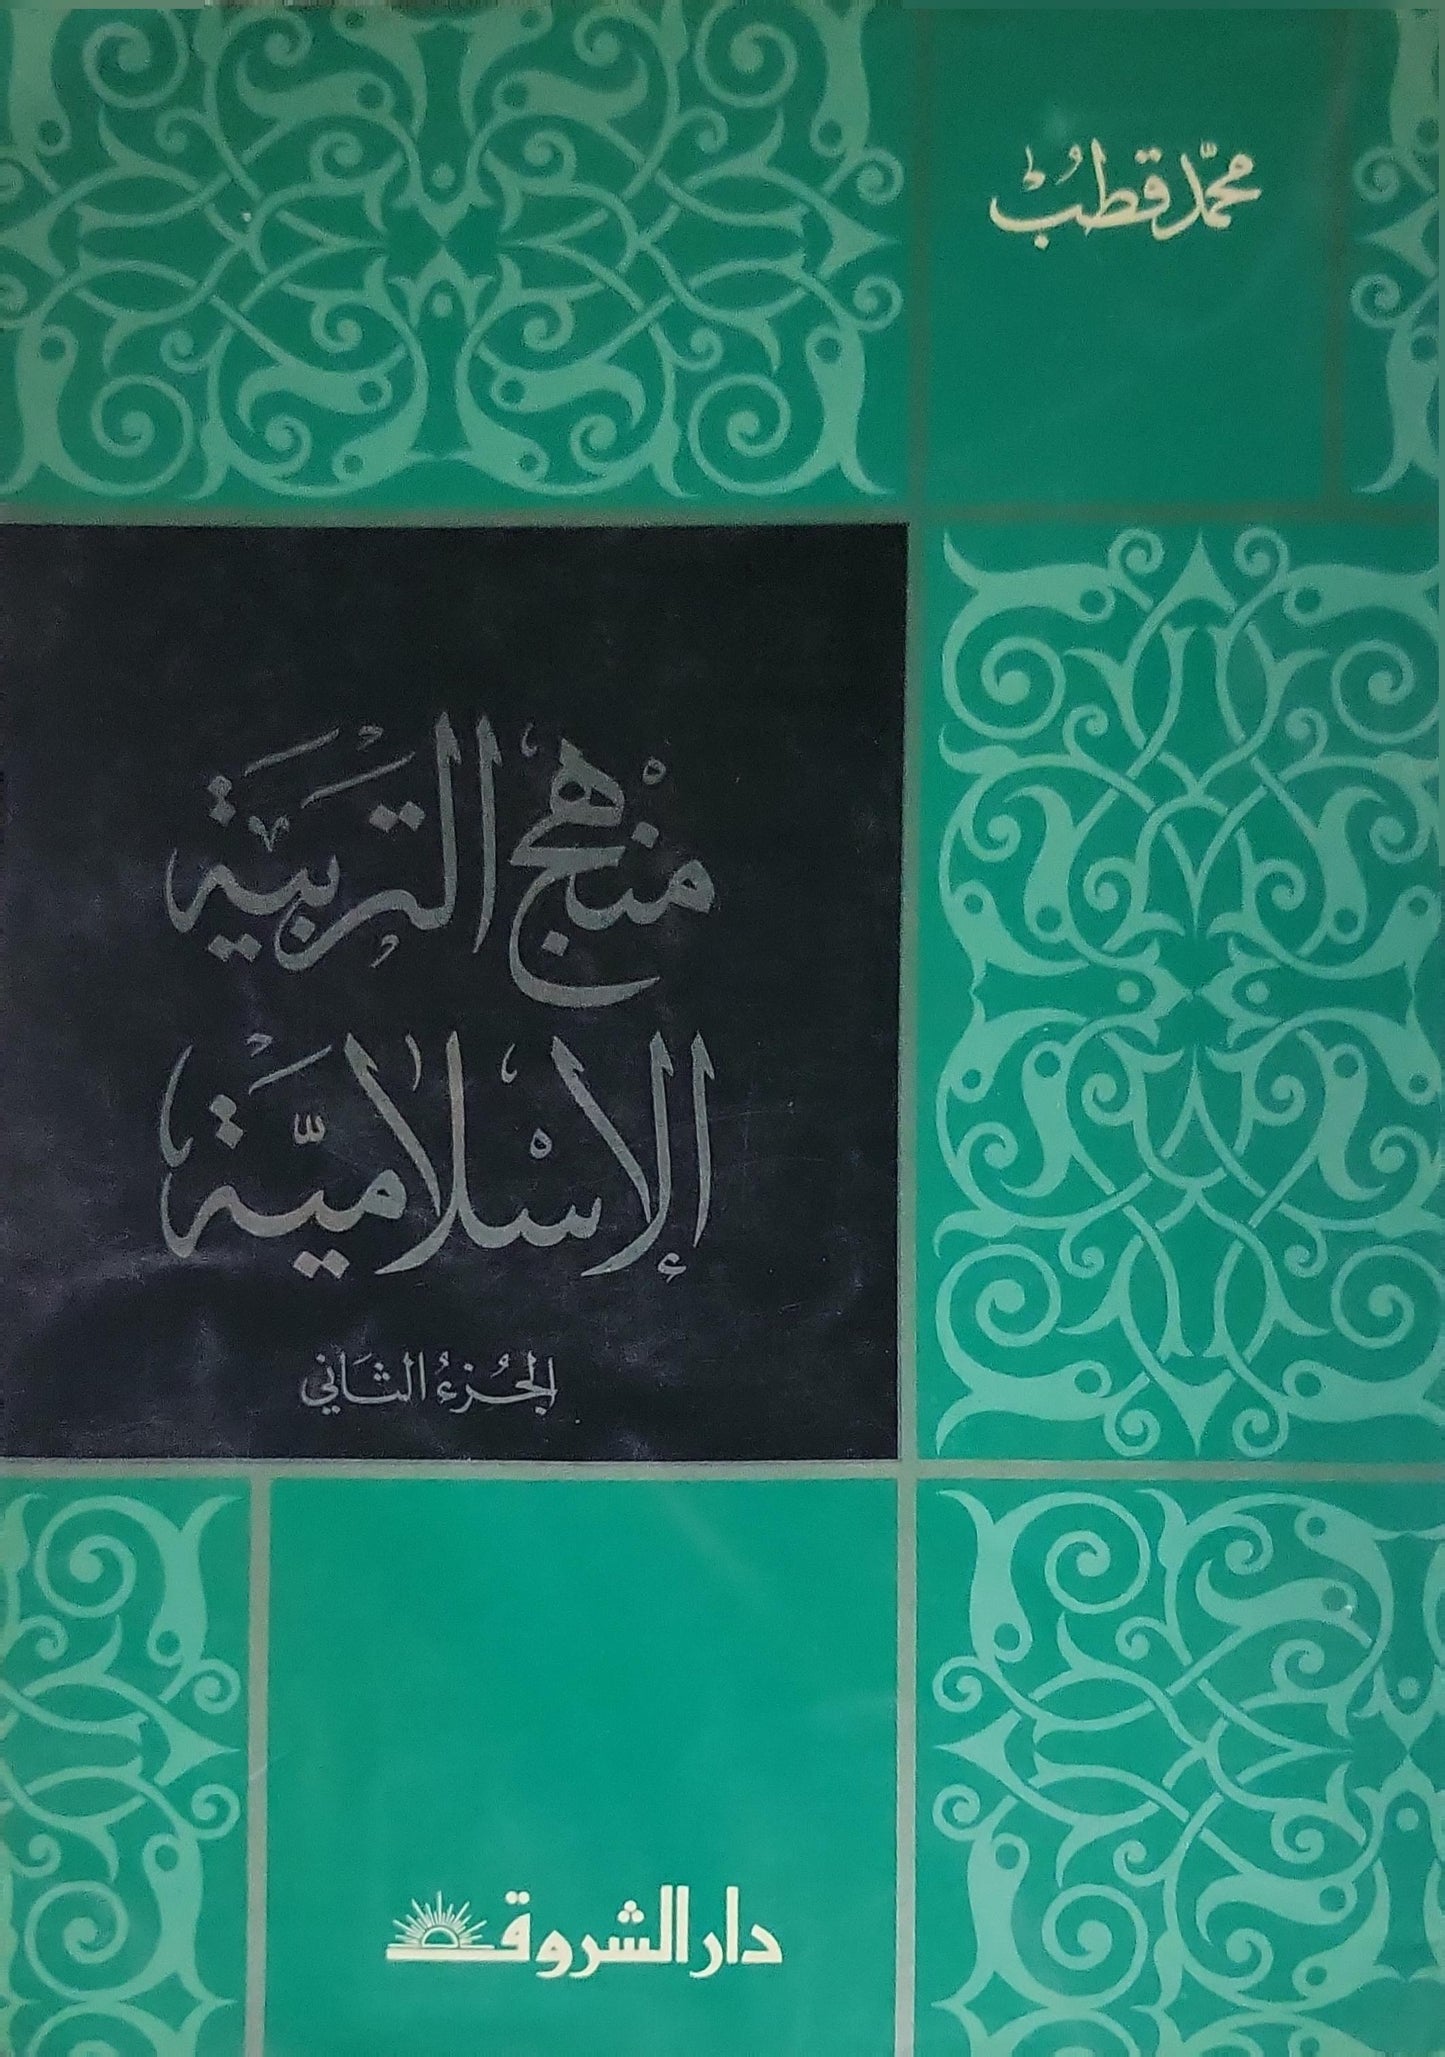 محمّد قطبْ
منْهج التربَية
الإسْلاميَّة
الجُزءُ الثَاني
دار الشروق